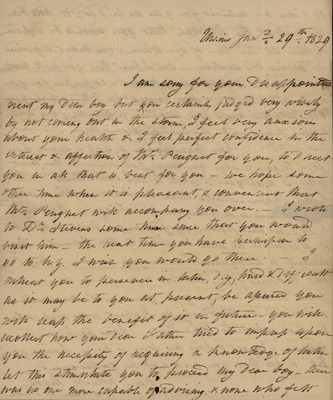 Union Jany 29th 1829
I am sorry for your Disappoint
ment my Dear boy but you certainly judged very wisely
by not coming out in the storm I feel very anxious
about your health & I feel perfect confidence in the
interest & affection of Mr. Peugnet for you, to Direct
you in all that is best for you – we hope some
other time when it is pleasant, & convenient that
Mr. Peugnet will accompany you over – I wrote
to Dr. Stevens some time since that you would
visit him – the next time you have permission to
go to N.Y. I wish you would go there. I
intreat you to persevere in Latin, Dry,
as it may be to you at present, be assured you
will reap the benefit of it in future – you will
recollect how your Dear Father tried to impress upon
you the necessity of acquiring a knowledge of Latin
let this stimulate you to proceed my Dear boy – there
was no one more capable of advising & none who felt